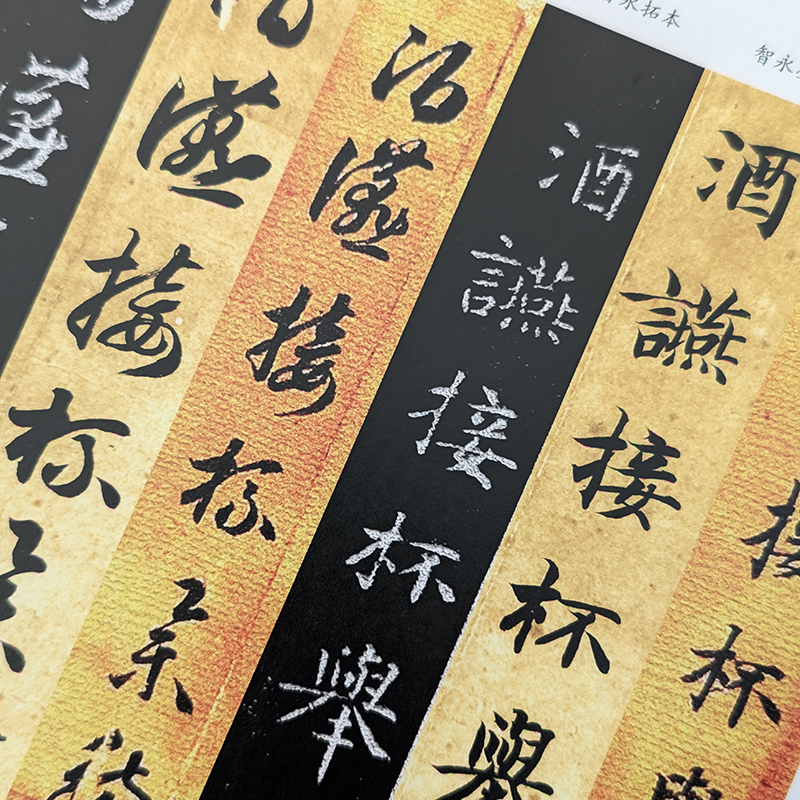 智永
智永拓本
接杯舉
酒讌接杯舉
酒讌接杯舉
酒讌接杯舉觴
酒讌接杯舉
讌